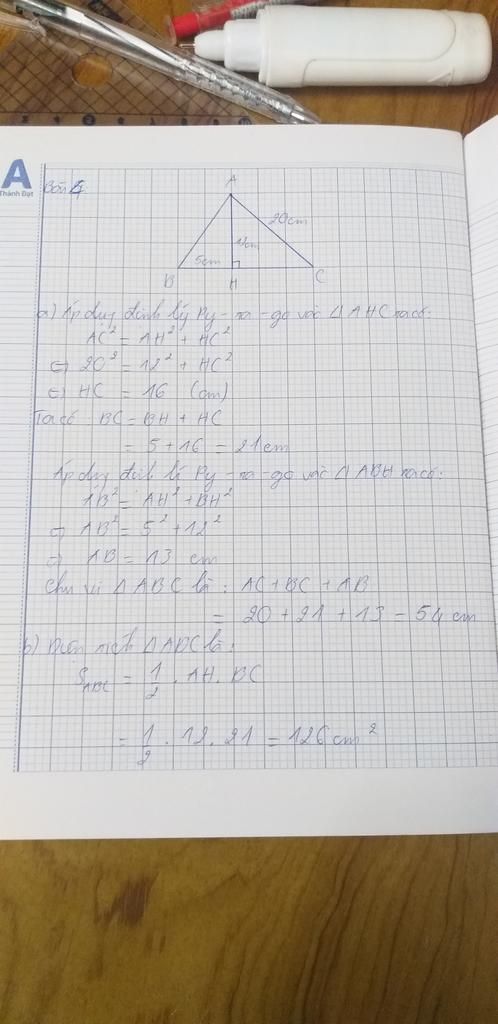 A
Thành Đạt
Bài 5
A
20cm
12cm
5cm
B
H
C
a) Áp dụng định lý Py-ta-go vào △AHC ta có:
AC² = AH² + HC²
⇔ 20² = 12² + HC²
⇔ HC = 16 (cm)
Ta có: BC = BH + HC
= 5 + 16 = 21cm
Áp dụng định lí Py-ta-go vào △ABH ta có:
AB² = AH² + BH²
⇒ AB² = 5² + 12²
⇒ AB = 13 cm
Chu vi △ABC là: AC + BC + AB
= 20 + 21 + 13 = 54 cm
b) Diện tích △ABC là:
S_ABC = 1/2 . AH . BC
= 1/2 . 12 . 21 = 126 cm²